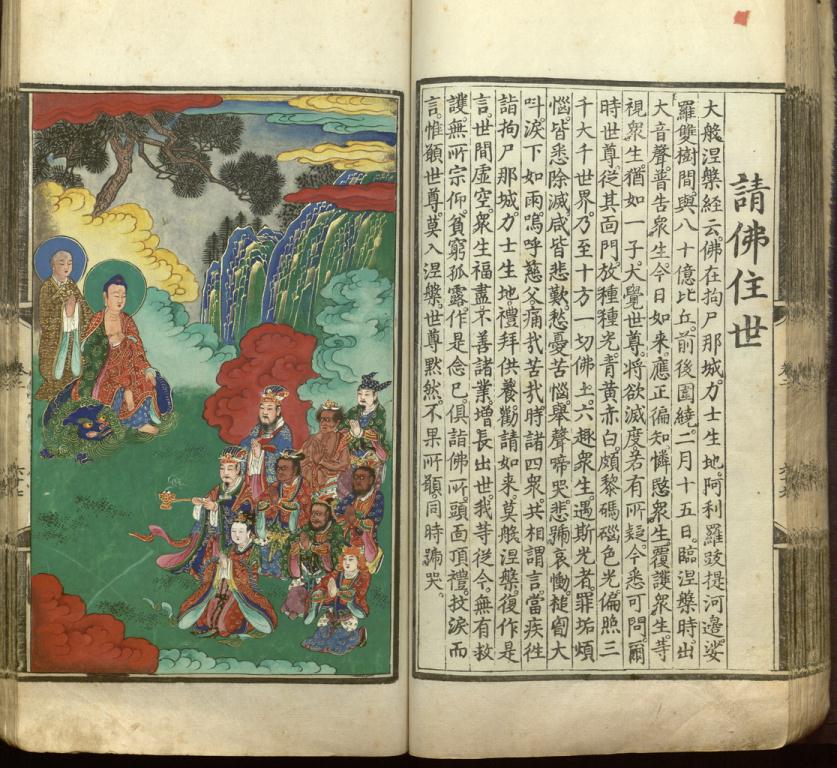 請佛住世
大般涅槃經云。佛在拘尸那城。力士生地。阿利羅跋提河邊。娑
羅雙樹間。與八十億比丘。前後圍繞。二月十五日。臨涅槃時。出
大音聲。普告衆生。今日如來。應正徧知。憐愍衆生。覆護衆生。等
視衆生。猶如一子。大覺世尊。將欲滅度。若有所疑。今悉可問。爾
時世尊。從其面門。放種種光。青黃赤白。頗黎碼碯色光。徧照三
千大千世界。乃至十方一切佛土。六趣衆生。遇斯光者。罪垢煩
惱。皆悉除滅。咸皆悲歎。愁憂苦惱。舉聲啼哭。悲號哀慟。搥胷大
叫。淚下如雨。嗚呼慈父。痛哉苦哉。時諸四衆。共相謂言。當疾往
詣拘尸那城。力士生地。禮拜供養。勸請如來。莫般涅槃。復作是
言。世間虛空。衆生福盡。不善諸業。增長出世。我等從今。無有救
護。無所宗仰。貧窮孤露。作是念已。俱詣佛所。頭面頂禮。投淚而
言。惟願世尊。莫入涅槃。世尊默然。不果所願。同時號哭。